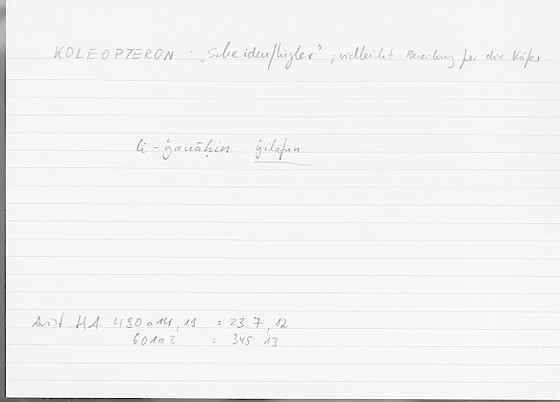 KOLEOPTERON : „Scheidenflügler“ ; vielleicht für die Käfer
li-ǧanāḥin ġilāfun
Arist. HA 490a14, 19 = 23.7, 12
601a3 = 345.13